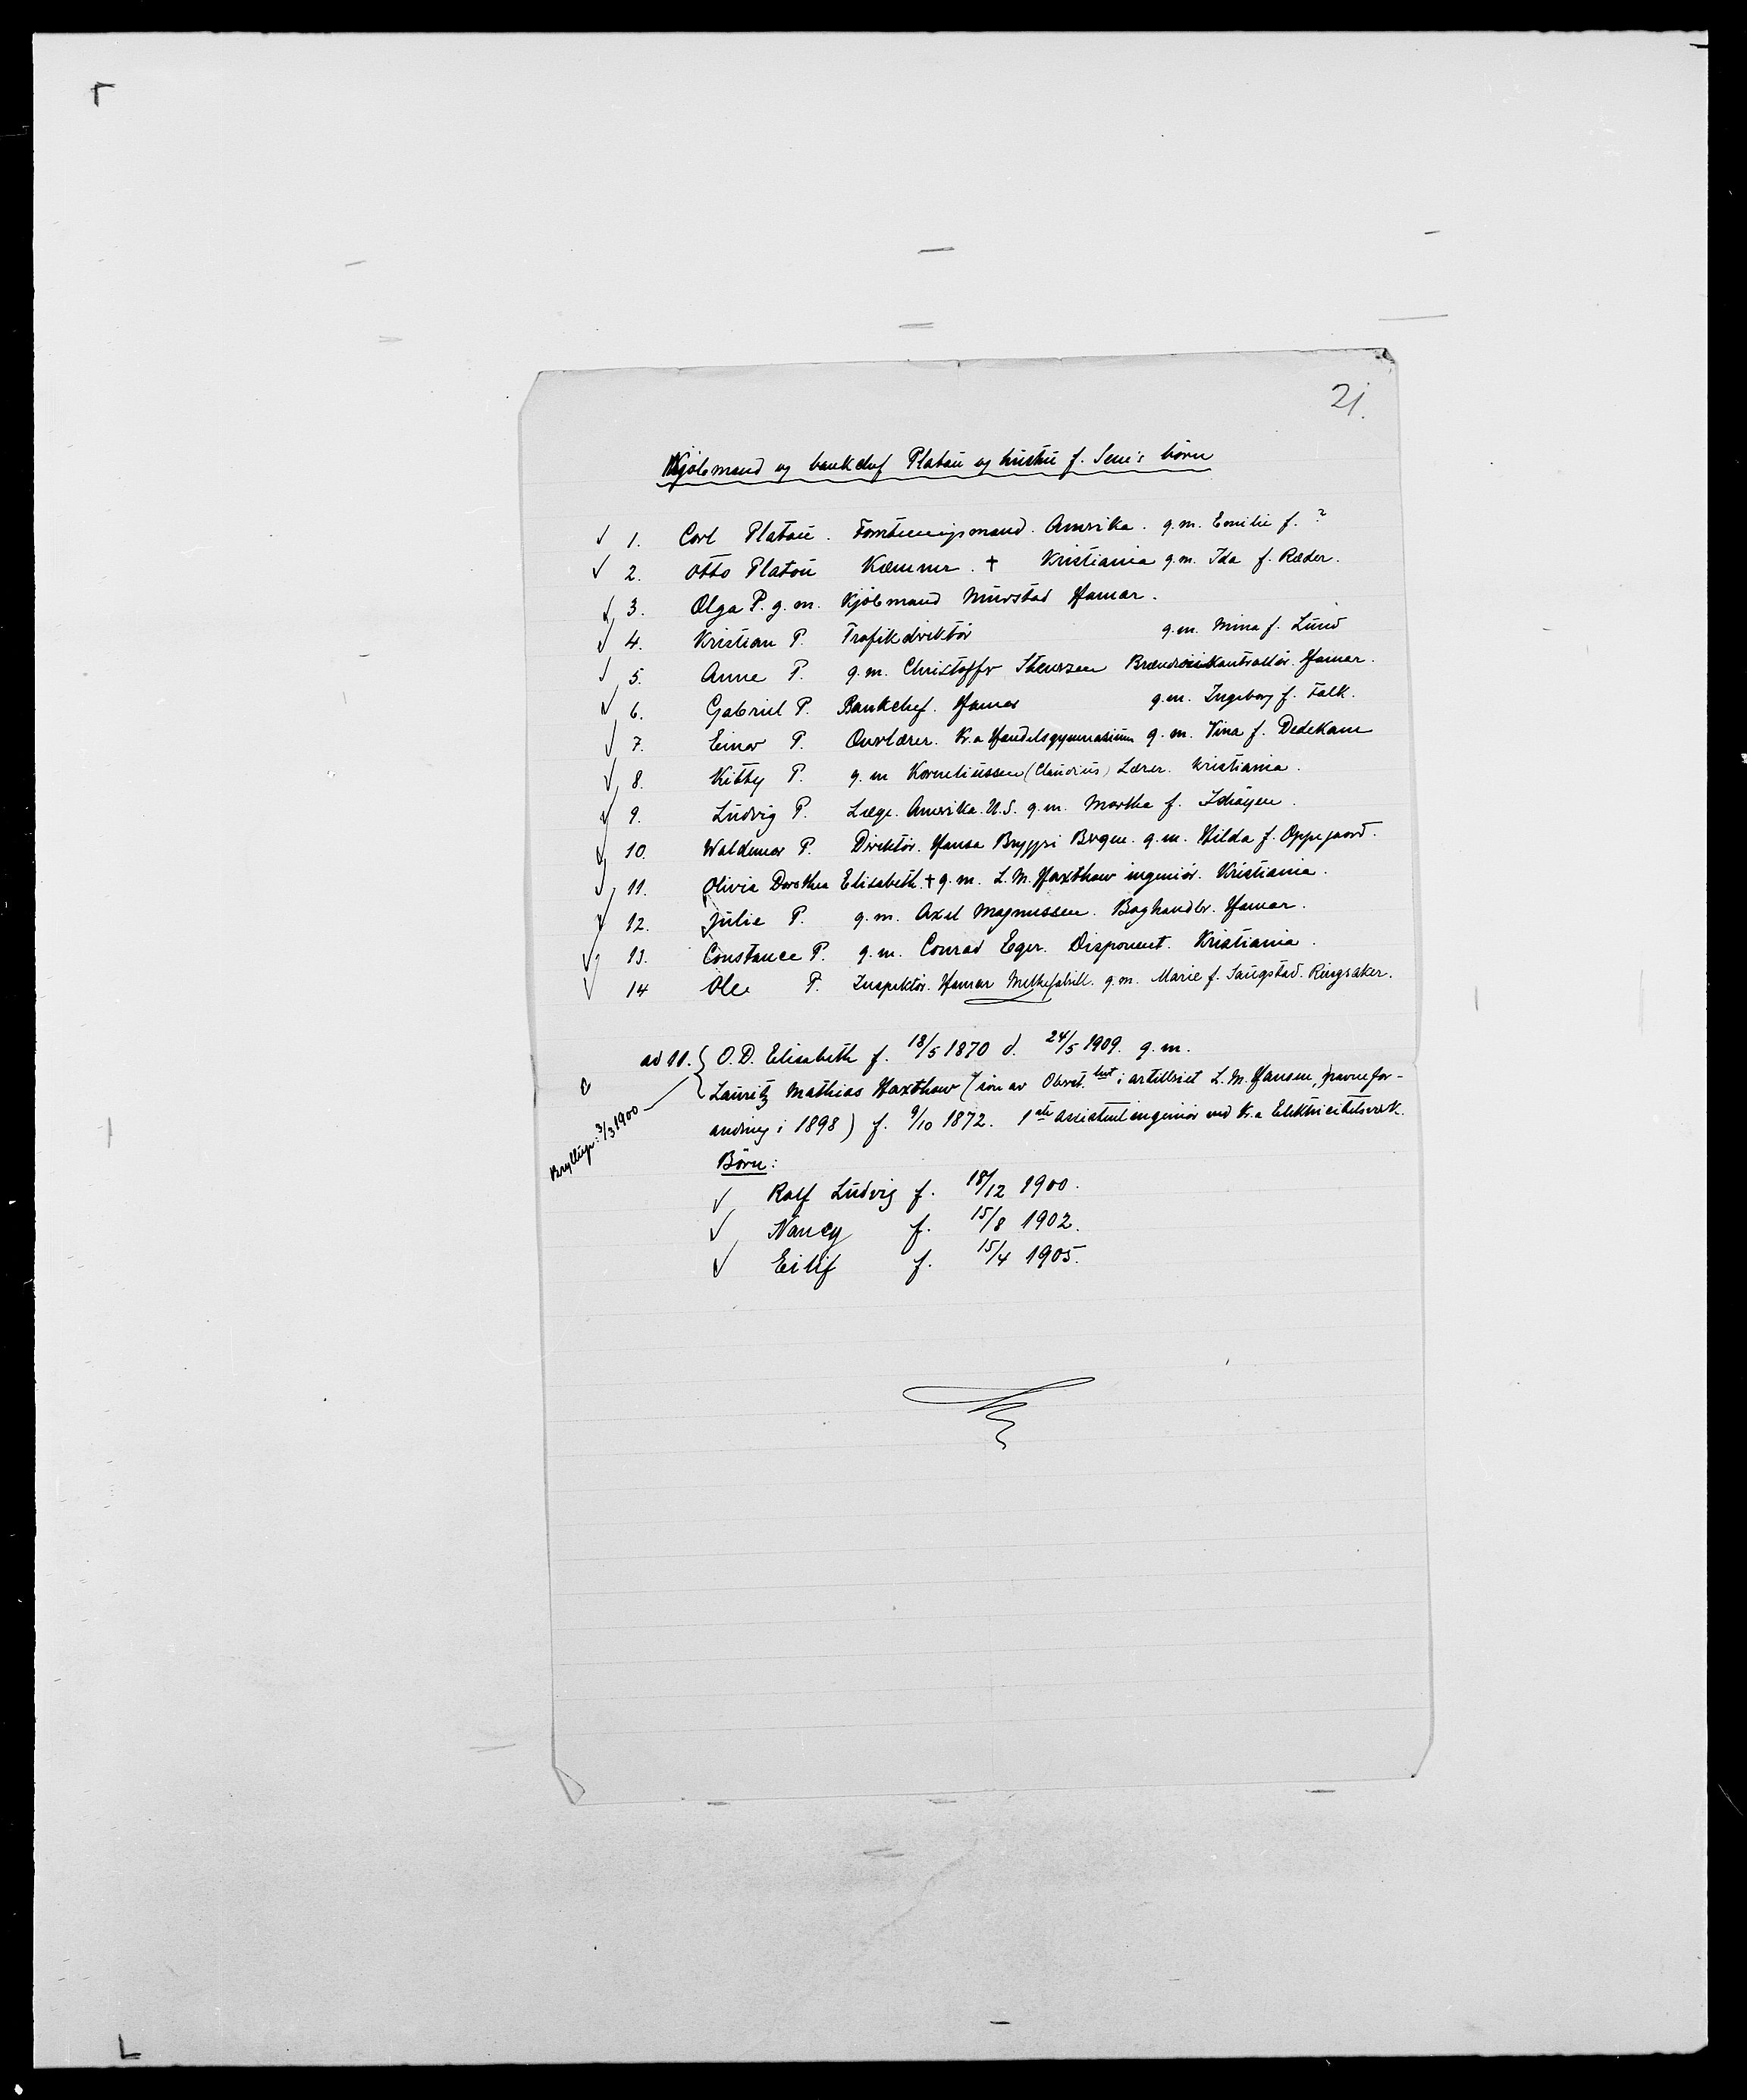 21.
Kjøbmand og bankchef Platou og hustru f. Sem's børn
✓ 1. Carl Platou. Forretningsmand. Amerika. g.m. Emilie f. ?
✓ 2. Otto Platou Kæmner. † Kristiania g.m. Ida f. Ræder.
✓ 3. Olga P. g.m. Kjøbmand Mürstad Hamar.
✓ 4. Kristian P. Trafikdirektør g.m. Mina f. Lund
✓ 5. Anne P. g.m. Christoffer Stenersen Brænderikontrollør. Hamar.
✓ 6. Gabriel P. Bankchef. Hamar g.m. Ingeborg f. Falk.
✓ 7. Einar P. Overlærer. Kr.a Handelsgymnasium g.m. Vina f. Dedekam
✓ 8. Kitty P. g.m Korneliussen (Claudius) Lærer. Kristiania.
✓ 9. Ludvig P. Læge. Amerika. U.S. g.m. Martha f.
✓ 10. Waldemar P. Direktør. Hansa Bryggri Bergen. g.m. Hilda f. Oppegaard.
✓ 11. Olivia Dorothea Elisabeth. † g.m. L.M. Haxthow ingeniør. Kristiania.
✓ 12. Julie P. g.m. Axel Magnussen. Boghandler. Hamar.
✓ 13. Constance P. g.m. Conrad Eger. Disponent. Kristiania.
✓ 14 Ole P. Inspektør. Hamar Melkefabrik. g.m. Marie f. Saugstad. Ringsaker.
ad 11. { O.D. Elisabeth f. 18/5 1870 d. 24/5 1909. g.m.
Lauritz Mathias Haxthow (søn av Oberst.lnt i artilleriet L.M. Hansen, navnefor-
andring i 1898) f. 9/10 1872. 1ste Assistentingeniør ved Kr.a Elektricitetsverk.
Bryllup: 3/3 1900
Børn:
✓ Rolf Ludvig f. 18/12 1900.
✓ Nancy f. 15/8 1902.
✓ Eilif f. 15/4 1905.